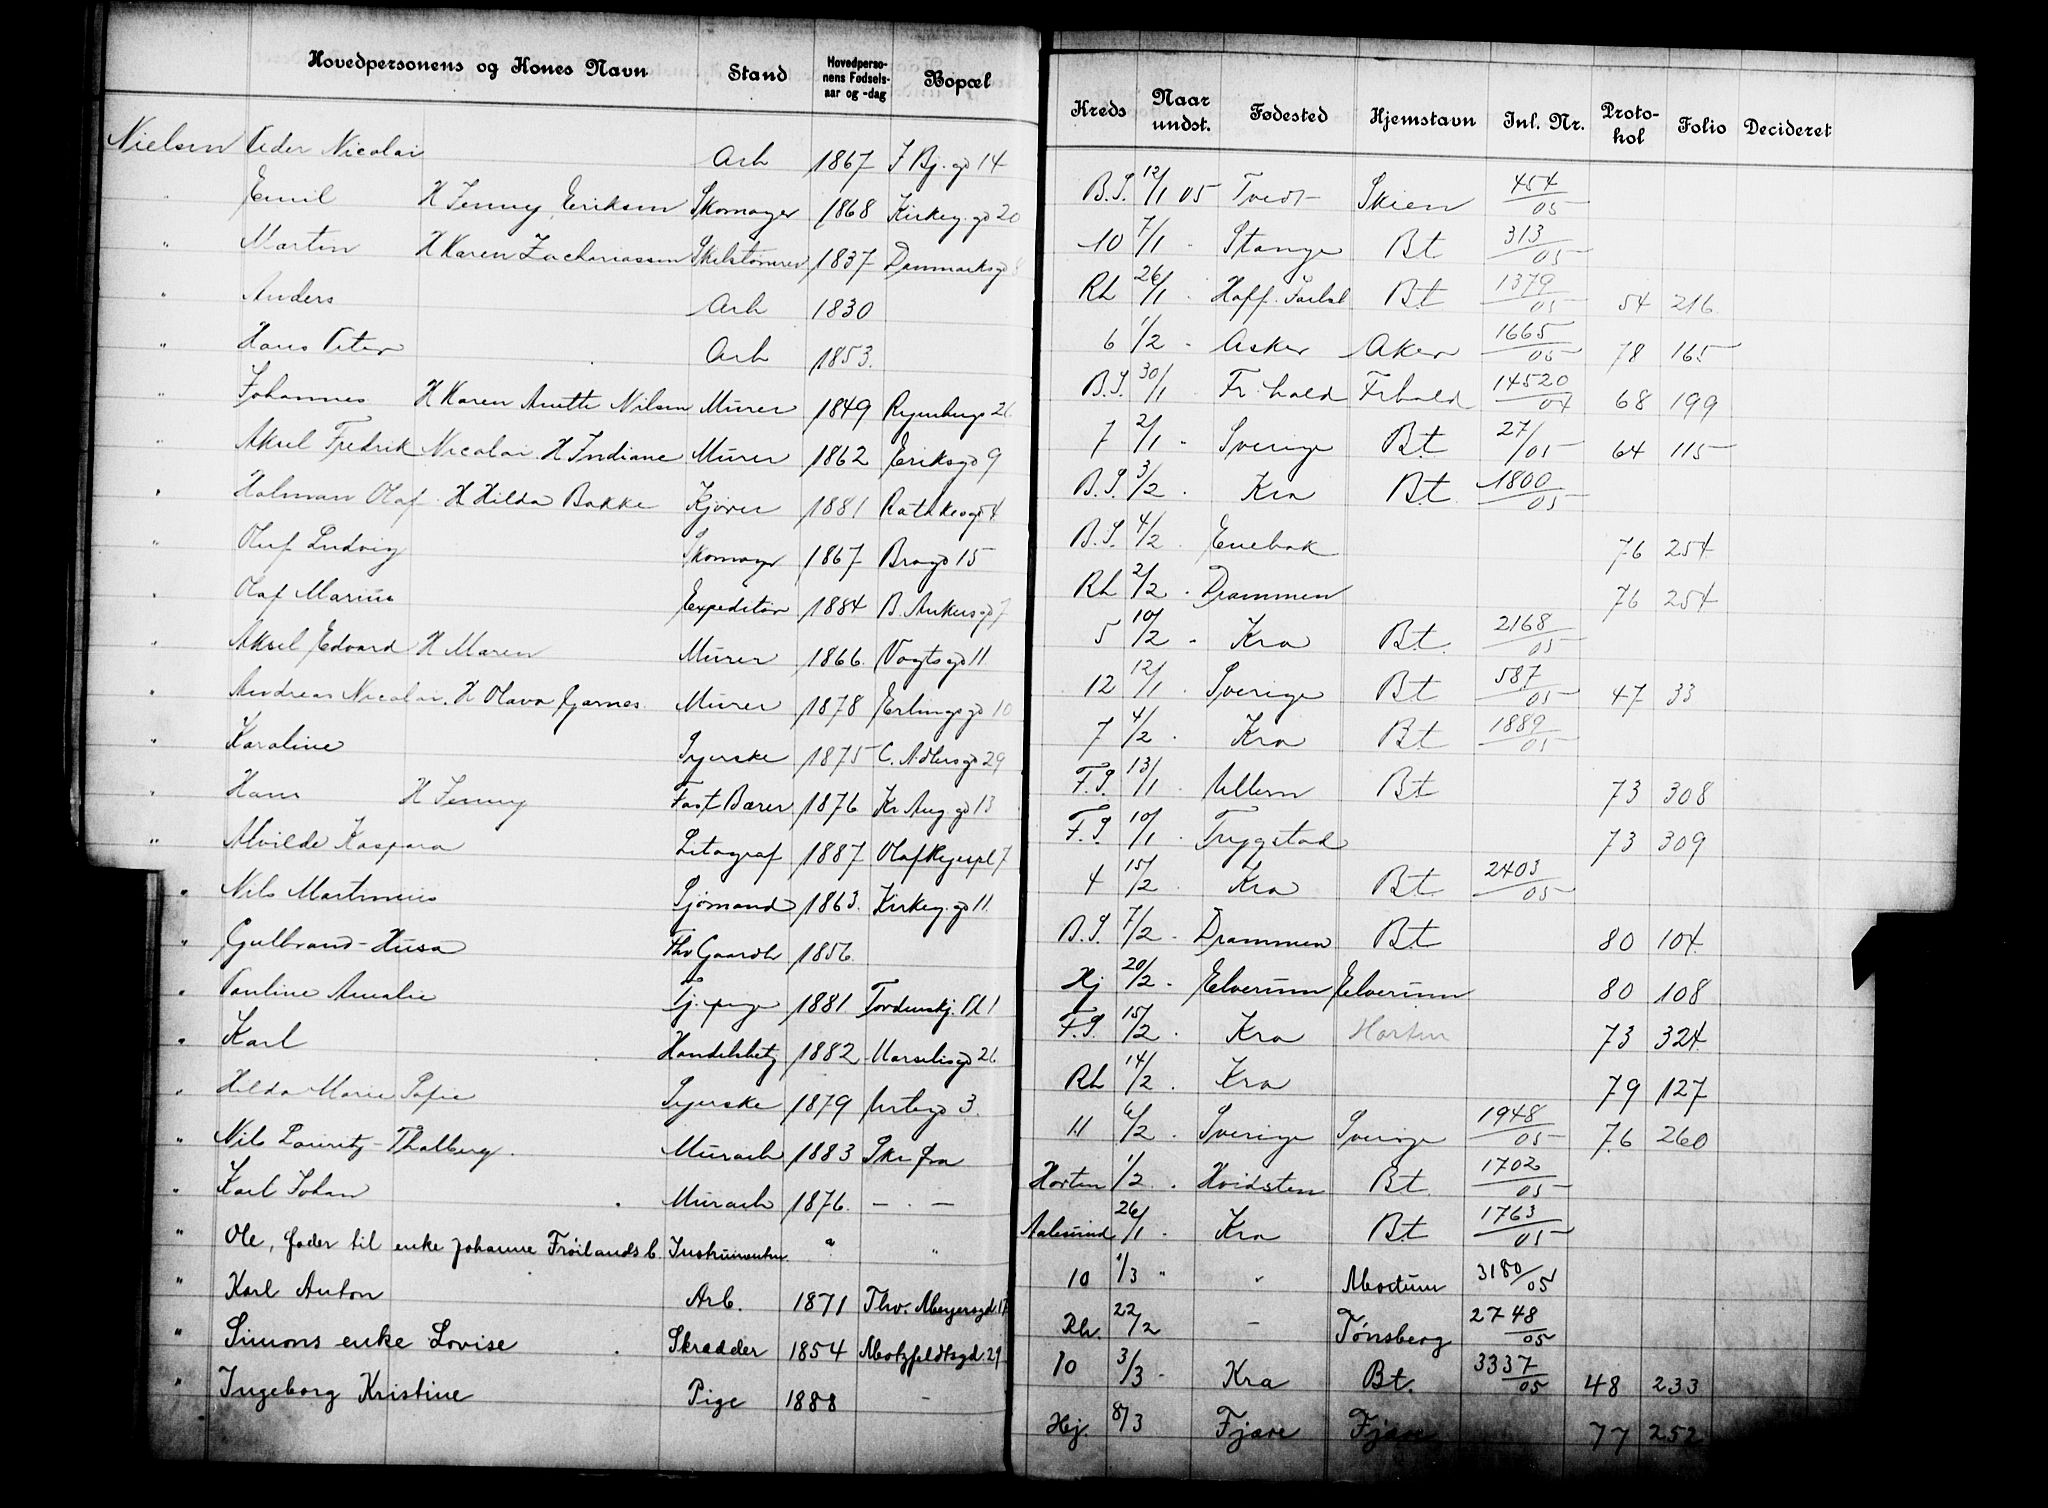 Hovedpersonens og Kones Navn Stand Hovedperso-nens Fødsels-aar og -dag Bopæl Kreds Naar undst. Fødested Hjemstavn Inl. Nr. Proto-kol Folio Decideret
Nielsen Peder Nicolai Arb 1867 J Bj. gd 14 B.S. 12/1 05 Tvedt Skien 454/05
" Emil H Jenny Eriksen Skomager 1868 Kirkeg. gd 20 10 7/1 - Stange Bt 313/05
" Martin H Karen Zachariassen 1837 Danmarksgd 8 Rh 26/1 - Bt 1379/05 54 216
" Anders Arb 1830 6 1/2 - Asker Aker 1665/05 78 165
" Hans Peter Arb 1853. B.S. 30/1 Fr. hald Frhald 14520/04 68 199
" Johannes H Karen Anette Nilsen Murer 1849 7 2/1 - Sverige Bt 27/05 64 115
" Aksel Fredrik Nicolai H Indiane Murer 1862 Eriksgd 9 B.S. 3/2 - Kra Bt 1800/05
" Halman Olaf H Hilda Bakke Kjører 1881 Rathkesgd 4 B.S. 4/2 - Enebak 76 254
" Oluf Ludvig Skomager 1867 Brogd 15 Rh 2/2 - Drammen 76 254
" Olaf Marius Expeditør 1884 B. Ankersgd 7 5 10/2 - Kra Bt. 2168/05
" Aksel Edvard H Maren Murer 1866. Vogtsgd 11 12 12/1 - Sverige Bt 587/05 47 33
" Andreas Nicolai. H Olava Gjarnes. Murer 1878 Erlingsgd 10 7 4/2 - Kra Bt 1889/05
" Karoline Syerske 1875 C. Adlersgd 29 F.S. 13/1 - Ullern Bt 73 308
" Hans H Jenny Fast Bærer 1876 Kr Aug gd 13 F.S. 10/1 - Trygstad 73 309
" Alvilde Kaspara Litograf 1887 Olaf Ryespl 7 4 15/2 Kra Bt. 2403/05
" Nils Martinius Sjømand 1863. Kirkeg. gd 11. B.S. 7/2 - Drammen Bt 80 104
" Gulbrand-Husa Fhv Gaardb 1856. Hj 20/2 - Elverum Elverum 80 108
" Pauline Amalie Tj. pige 1881 Tordenskj. Pl 1 F.S. 15/2 - Kra Horten 73 324
" Karl Handelsbetj 1882 Marselisgd 26 Rh 14/2 - Kra 79 127
" Hilda Marie Sofie Syerske 1879 Urtegd 3. 11 6/2 - Sverige Sverige 1948/05 76 260
" Nils Lauritz-Thalberg. Murarb 1883 Skr fra Horten 1/2 - Hvidsten Bt. 1702/05
" Karl Johan Murarb 1876. - . - Aalesund 26/1 - Kra Bt 1763/05
" Ole, fader til enke Johanne Frøilands b. " " 10 1/3 " " Modum 3180/05
" Karl Anton Arb. 1871 Thv. Meyersgd. 17 Rh. 22/2 - Tønsberg 2748/05
" Simons enke Lovise Skrædder 1854 Motzfeldtsgd. 29 10 3/3 - Kra Bt. 3337/05 48 233
" Ingeborg Kristine Pige 1888 - Hj. 8/3 Fjære Fjære 77 252